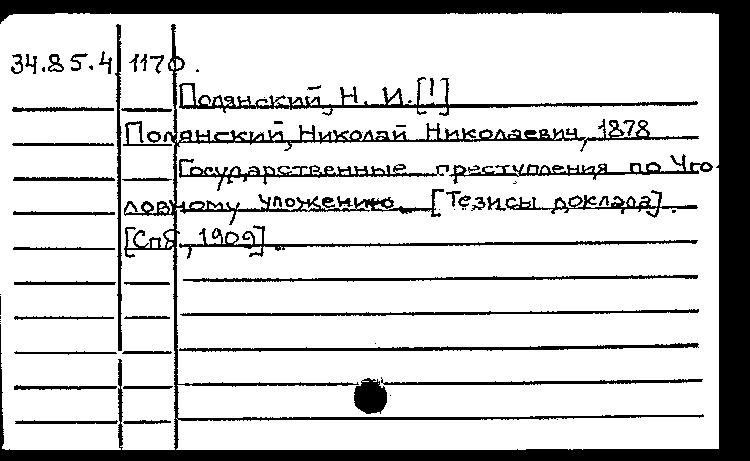 34.85.4 1170.
Полянский, Н. И. [!]
Полянский, Николай Николаевич, 1878
Государственные преступления по Уго-
ловному уложению. [Тезисы доклада].
[Спб, 1909].